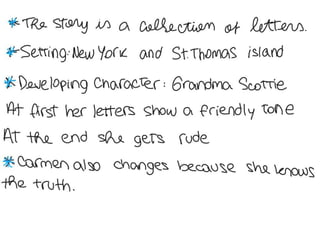 * The story is a collection of letters.
* Setting: New York and St.Thomas island
* Developing Character: Grandma Scottie
At first her letters show a friendly tone
At the end she gets rude
* Carmen also changes because she knows
the truth.